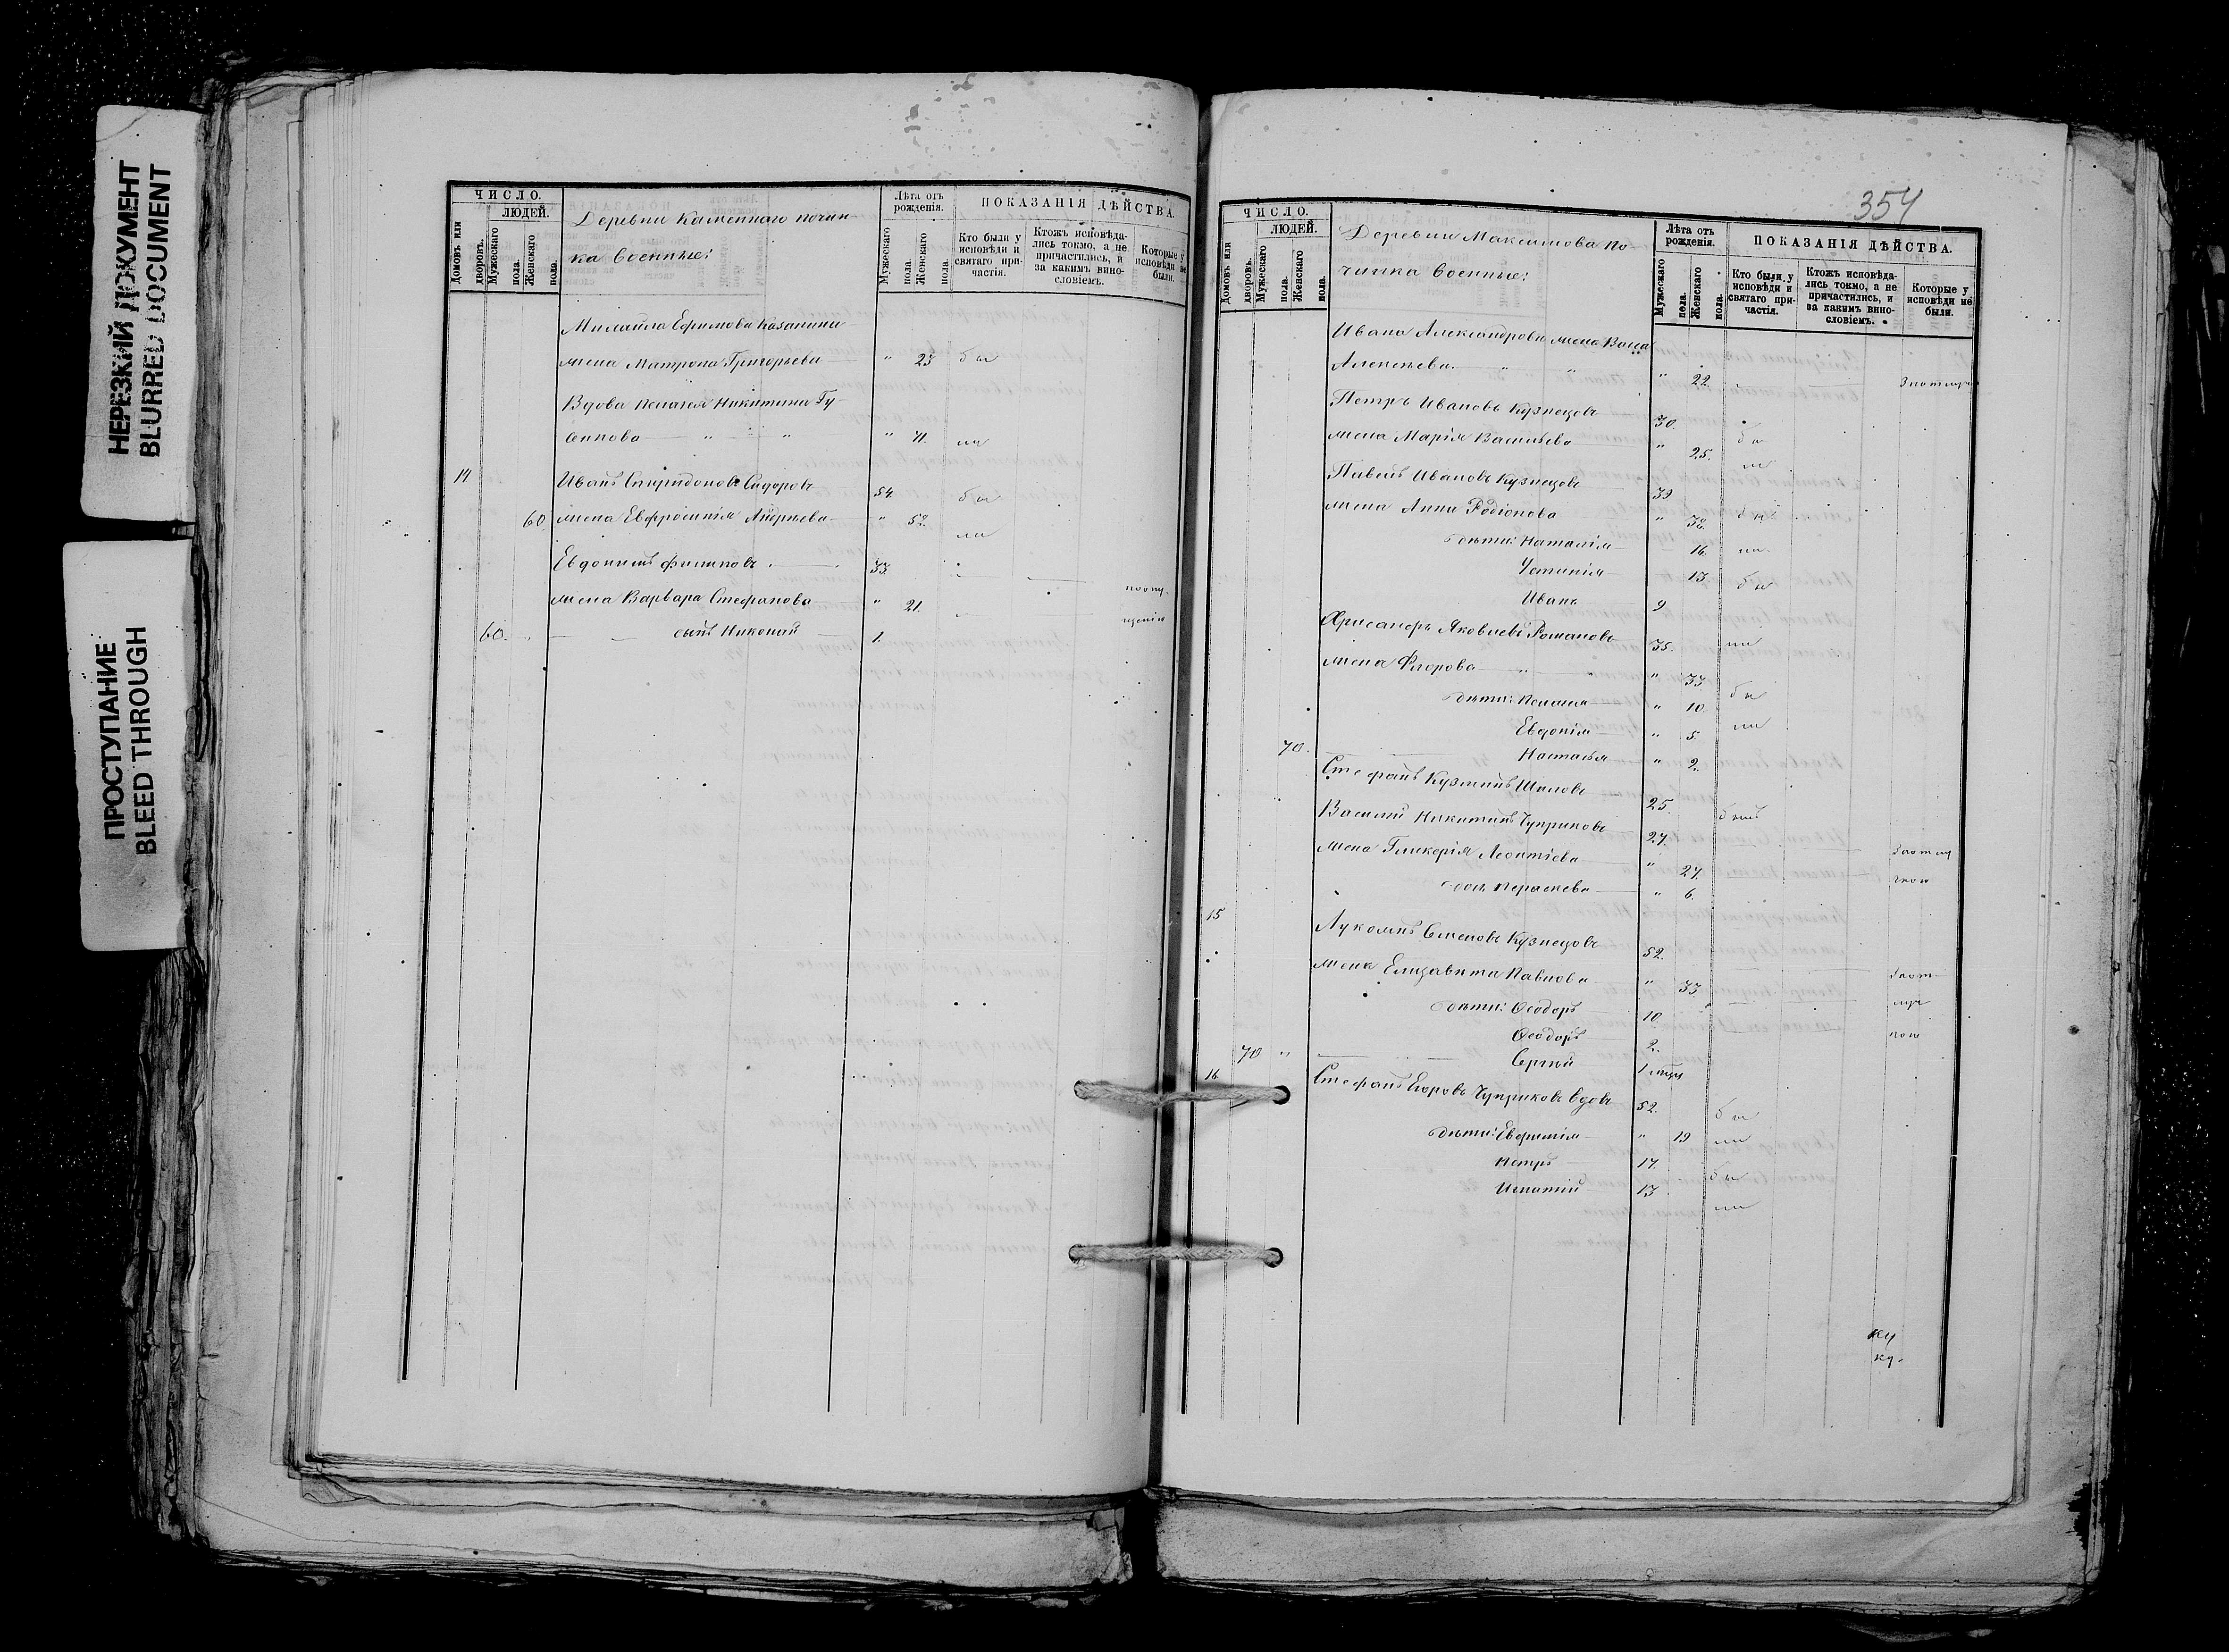 НЕРЕЗКИЙ ДОКУМЕНТ
BLURRED DOCUMENT
ПРОСТУПАНИЕ
BLEED THROUGH
ЧИСЛО.
ЛЮДЕЙ.
Домовъ или дворовъ.
Мужескаго пола.
Женскаго пола.
Деревни Каменнаго почин-
ка военные:
Лѣта отъ рожденія.
Мужескаго пола.
Женскаго пола.
ПОКАЗАНІЯ ДѢЙСТВА.
Кто были у исповѣди и святаго причастія.
Ктожъ исповѣдались токмо, а не причастились, и за какимъ винословіемъ.
Которые у исповѣди не были.
Михаила Ефимова Казанина
жена Матрона Григорьева " 23 бы
Вдова Пелагея Никитина Гу-
" " " 71. ли
14 Иванъ Спиридоновъ Сидоровъ 54. бы
60 жена Евфросинія Андреева " 52. ли
Евдокимъ Филиповъ 33.
жена Варвара Стефанова " 21.
60. " сынъ Николай 1.
354
ЧИСЛО.
ЛЮДЕЙ.
Домовъ или дворовъ.
Мужескаго пола.
Женскаго пола.
Деревни Максимова по-
чинка военные:
Лѣта отъ рожденія.
Мужескаго пола.
Женскаго пола.
ПОКАЗАНІЯ ДѢЙСТВА.
Кто были у исповѣди и святаго причастія.
Ктожъ исповѣдались токмо, а не причастились, и за какимъ винословіемъ.
Которые у исповѣди не были.
Ивана Александрова жена Васса
Алексѣева " " " 22.
Петръ Ивановъ Кузнецовъ 30. бы
жена Марія Васильева " 25. ли
Павелъ Ивановъ Кузнецовъ 39 бы
жена Анна Родіонова " 38.
дѣти: Наталія 16. ли
Устинія 13. бы
Иванъ 9
Хрисанфъ Яковлевъ Романовъ 35. ли
жена Флорова " " " 33 бы
дѣти: Пелагея " 10. ли
Евдокія " 5.
70. Настасья " 2.
Стефанъ Кузминъ Шиловъ 25. былъ
Василій Никитинъ Чуприковъ 27.
жена Гликерія Леонтіева " 27.
дочь Параскева " 6.
15 Лукоянъ Семеновъ Кузнецовъ 52.
жена Елизавета Павлова " 33
дѣти: Ѳеодоръ 10.
Ѳеодоръ 2.
70 " Сергѣй 1
16. Стефанъ Егоровъ Чуприковъ вдовъ 52. бы
дѣти: Евфимія " 19 ли
Петръ 17. бы
Игнатій 13 ли